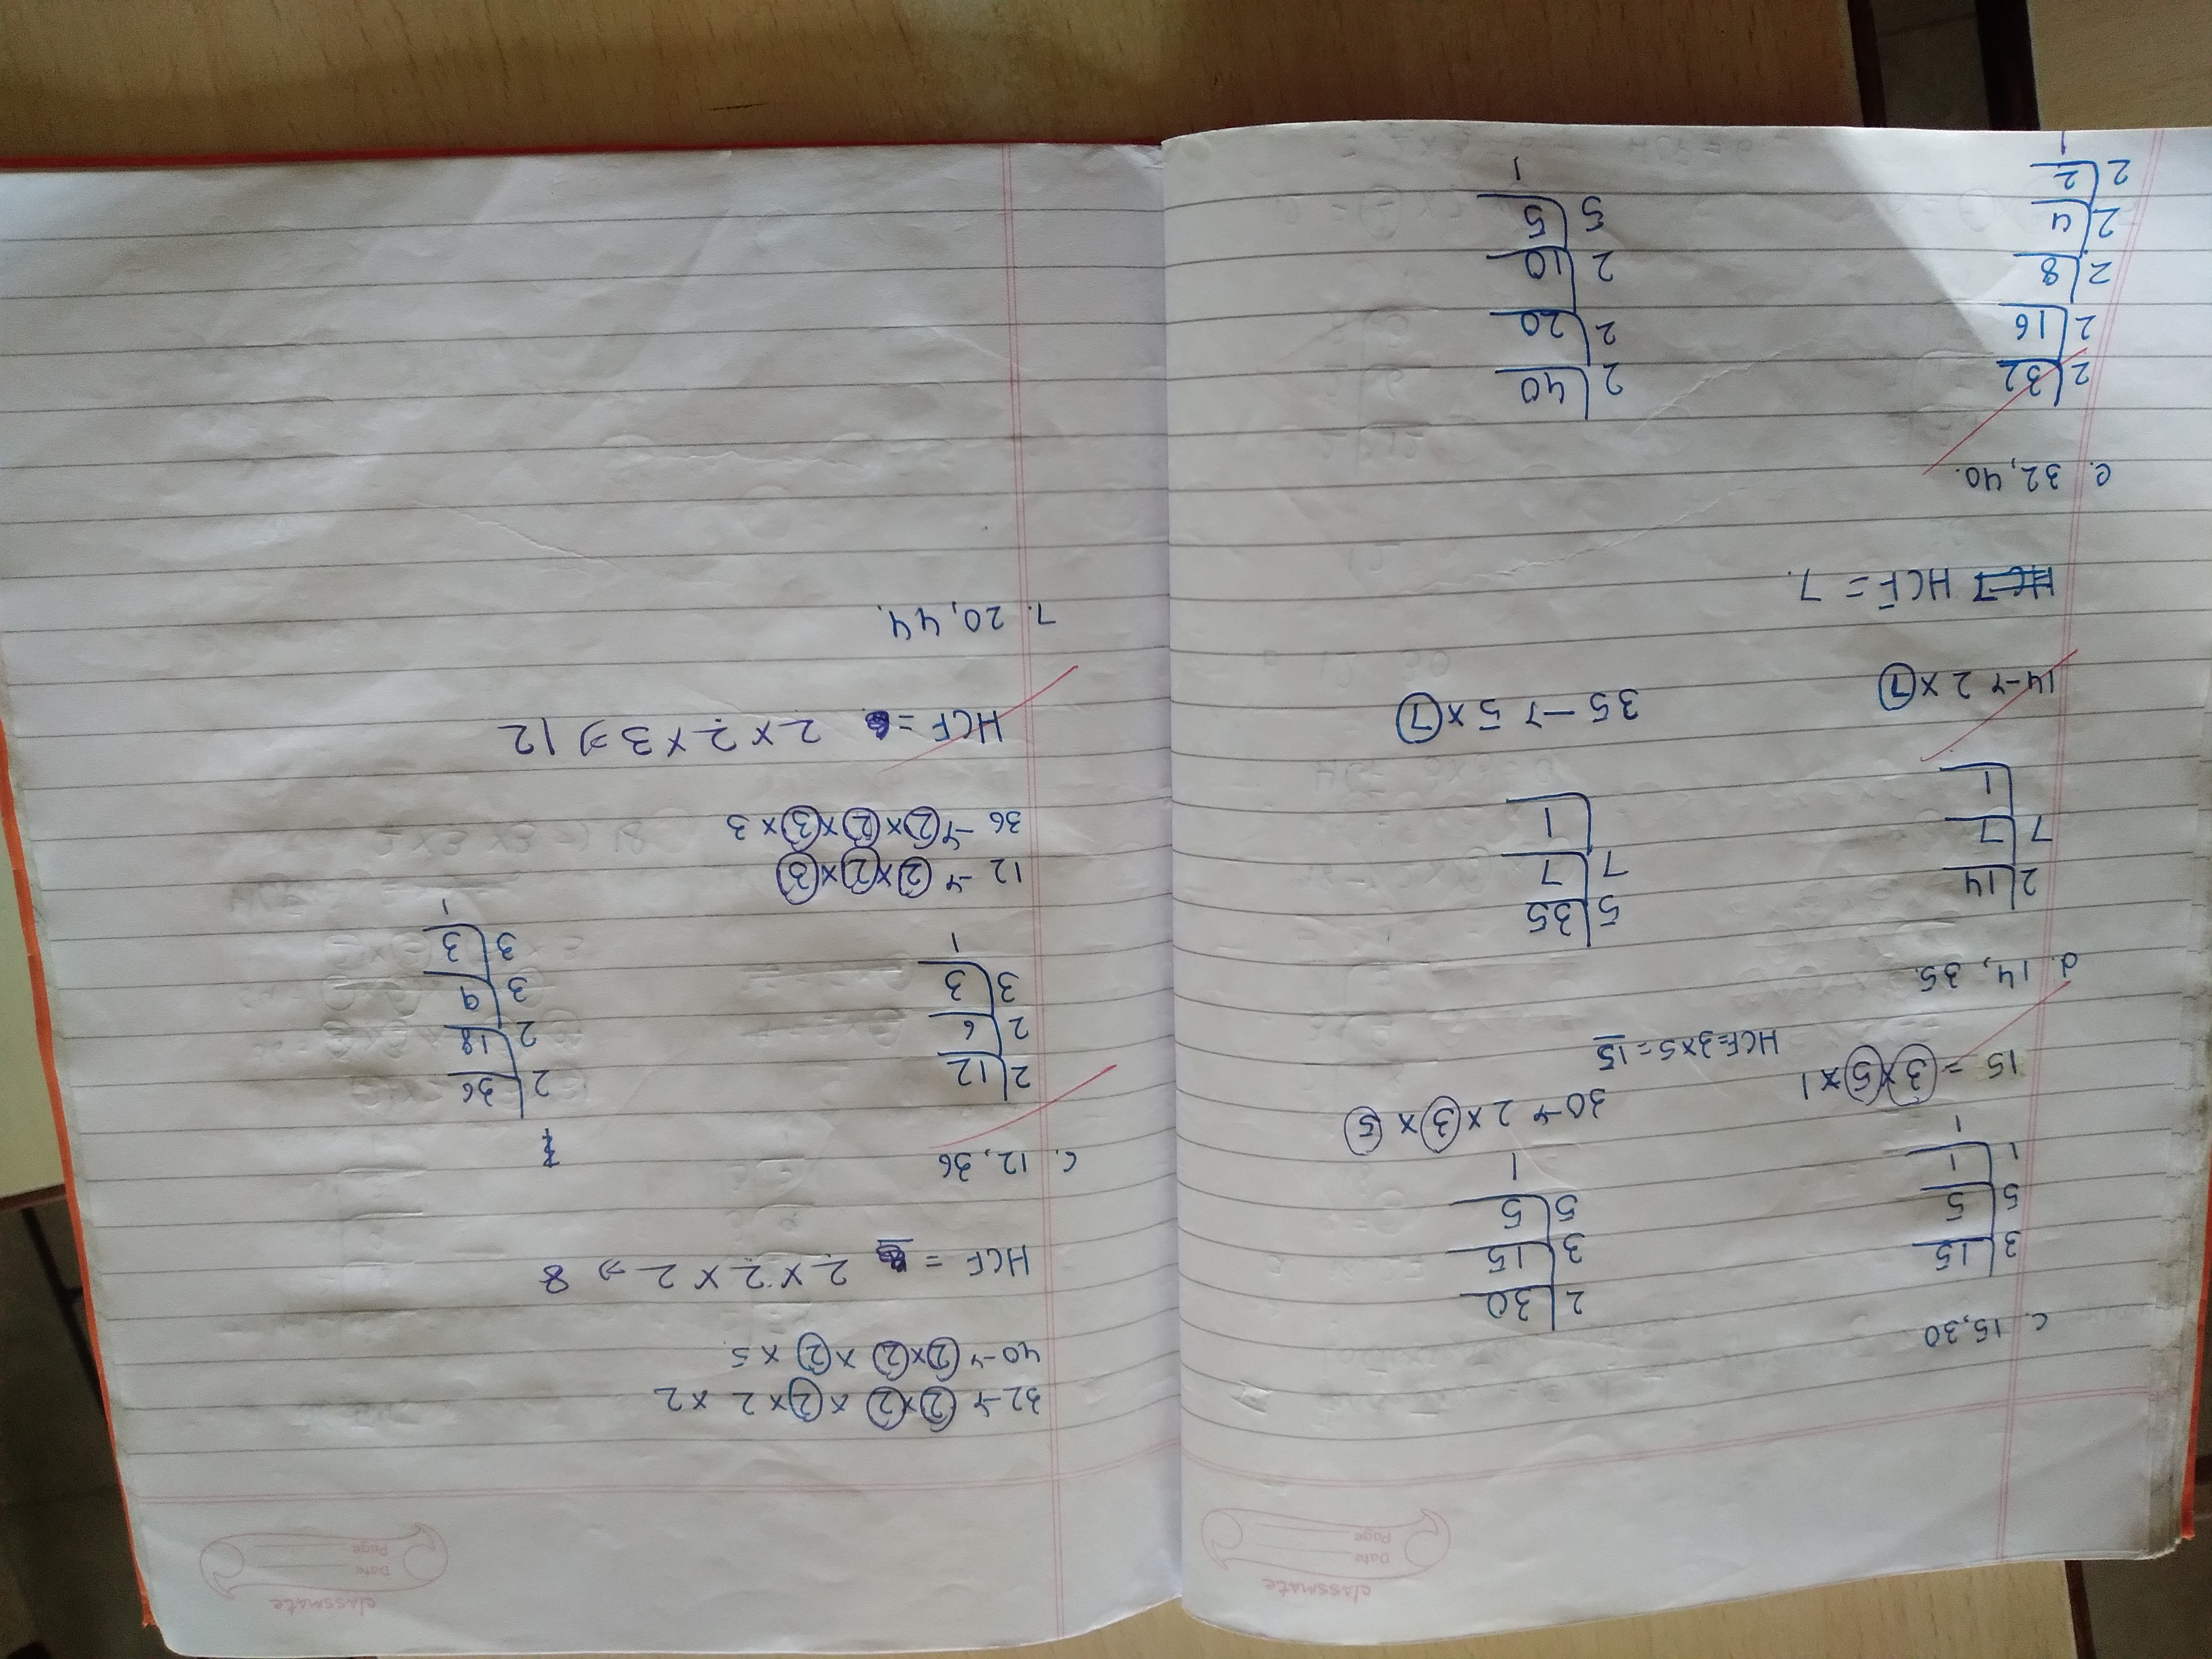 classmate
Date
Page
c. 15,30
3 | 15
5 | 5
1 | 1
1
2 | 30
3 | 15
5 | 5
1
15 = 3 x 5 x 1
30 → 2 x 3 x 5
HCF = 3 x 5 = 15
d. 14, 35
2 | 14
7 | 7
1
5 | 35
7 | 7
1
14 → 2 x 7
35 → 5 x 7
HCF = 7.
e. 32, 40.
2 | 32
2 | 16
2 | 8
2 | 4
2 | 2
1
2 | 40
2 | 20
2 | 10
5 | 5
1
classmate
Date
Page
32 → 2 x 2 x 2 x 2 x 2
40 → 2 x 2 x 2 x 5
HCF = 2 x 2 x 2 ⇒ 8
c. 12, 36
2 | 12
2 | 6
3 | 3
1
2 | 36
2 | 18
3 | 9
3 | 3
1
12 → 2 x 2 x 3
36 → 2 x 2 x 3 x 3
HCF = 2 x 2 x 3 ⇒ 12
7. 20, 44.